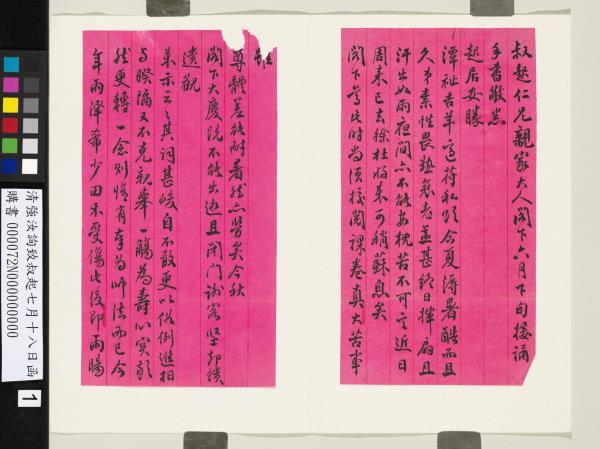 叔起仁兄親家大人閣下六月下旬接誦
手書敬悉
起居安勝
潭祉吉羊適符私頌今夏溽暑酷而且
久弟素性畏熱衰老益甚終日揮扇且
汗出如雨夜間亦不能安枕苦不可言近日
周來已去徐杜將來可稍蘇息矣
閣下當此時尚須校閱課卷真大苦事
雖
尊體差能耐暑然亦勞矣今秋
閣下大慶既不能出遊且閉門謝客堅卻饋
遺觀
來示云云其詞甚峻自不敢更以俗例進相
與暌隔又不克親舉一觴為壽心實歉
然更轉一念則惟有奉為師法而已今
年雨澤希少田禾受傷此後即雨暘
清強汝詢致叔起七月十八日函
購書 000072N000000000
1